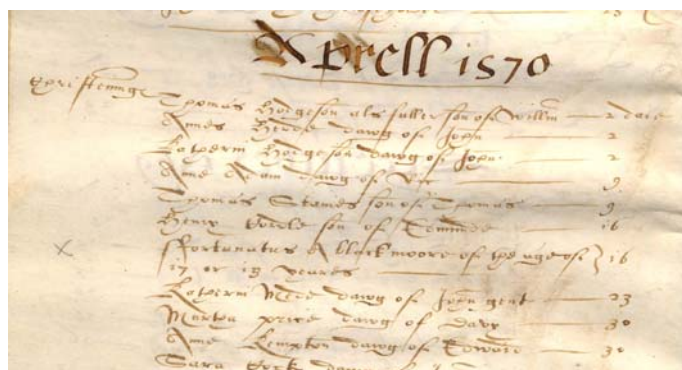 Aprell 1570
Christeninge
Thomas Hodgeson als fuller son of Willm 2 daie
Annes Herde dawg of John 2
Kathern Hodgeson dawg of John 2
Anne Adam dawg of 9
Thomas Staines son of Thomas 9
Henry son of Edmunde 16
X
ffortunatus A blackmoore of the age of 16
17 or 18 yeares
Kathern dawg of John gent 23
price dawg of Davy 30
Anne Kempton dawg of Edward 30
Sara dawg